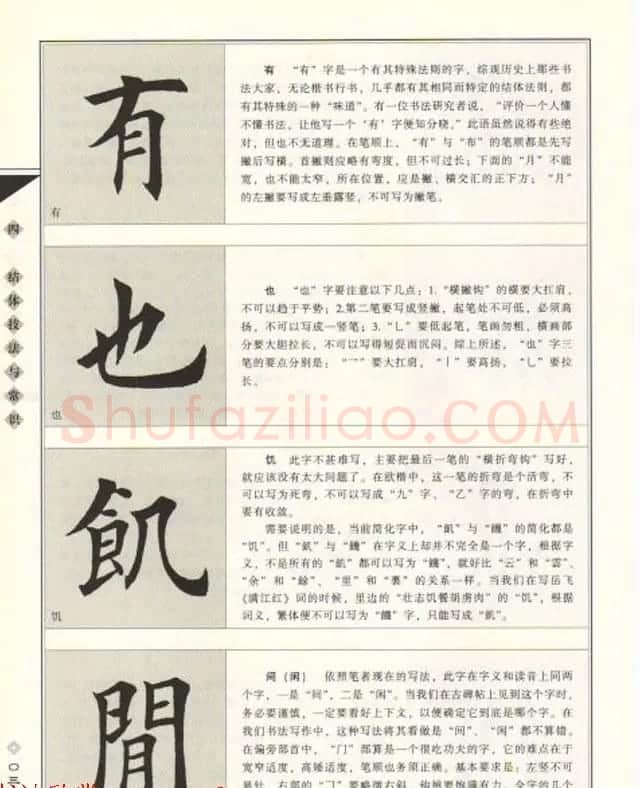 四 结体技法与常识
有
有
有 “有”字是一个有其特殊法则的字，综观历史上那些书
法大家，无论楷书行书，几乎都有其相同而特定的结体法则，都
有其特殊的一种“味道”。有一位书法研究者说，“评价一个人懂
不懂书法，让他写一个‘有’字便知分晓。”此语虽然说得有些绝
对，但也不无道理。在笔顺上，“有”与“布”的笔顺都是先写
撇后写横。首撇则应略有弯度，但不可过长；下面的“月”不能
宽，也不能太窄，所在位置，应是撇、横交汇的正下方；“月”
的左撇要写成左垂露竖，不可写为撇笔。
也
也
也 “也”字要注意以下几点：1.“横撇钩”的横要大扛肩，
不可以趋于平势；2.第二笔要写成竖撇，起笔处不可低，必须高
扬，不可以写成一竖笔；3.“乚”要低起笔，笔画勿粗，横画部
分要大胆拉长，不可以写得短促而沉闷。综上所述，“也”字三
笔的要点分别是：“乛”要大扛肩，“丨”要高扬，“乚”要拉
长。
Shufaziliao.COM
飢
饥
饥 此字不甚难写，主要把最后一笔的“横折弯钩”写好，
就应该没有太大问题了。在欧楷中，这一笔的折弯是个活弯，不
可以写为死弯，不可以写成“九”字、“乙”字的弯，在折弯中
要有收敛。
需要说明的是，当前简化字中，“飢”与“饑”的简化都是
“饥”。但“飢”与“饑”在字义上却并不完全是一个字，根据字
义，不是所有的“飢”都可以写为“饑”，就好比“云”和“雲”、
“余”和“餘”、“里”和“裏”的关系一样。当我们在写岳飞
《满江红》词的时候，里边的“壮志饥餐胡虏肉”的“饥”，根据
词义，繁体便不可以写为“饑”字，只能写成“飢”。
閒
间（闲） 依照笔者现在的写法，此字在字义和读音上同两
个字，一是“间”，二是“闲”。当我们在古碑帖上见到这个字时，
务必要谨慎，一定要看好上下文，以便确定它到底是哪个字。在
我们书法写作中，这种写法将其看做是“间”、“闲”都不算错。
在偏旁部首中，“门”部算是一个很吃功夫的字，它的难点在于
宽窄适度，高矮适度，笔顺也务须正确。基本要求是：左竖不可